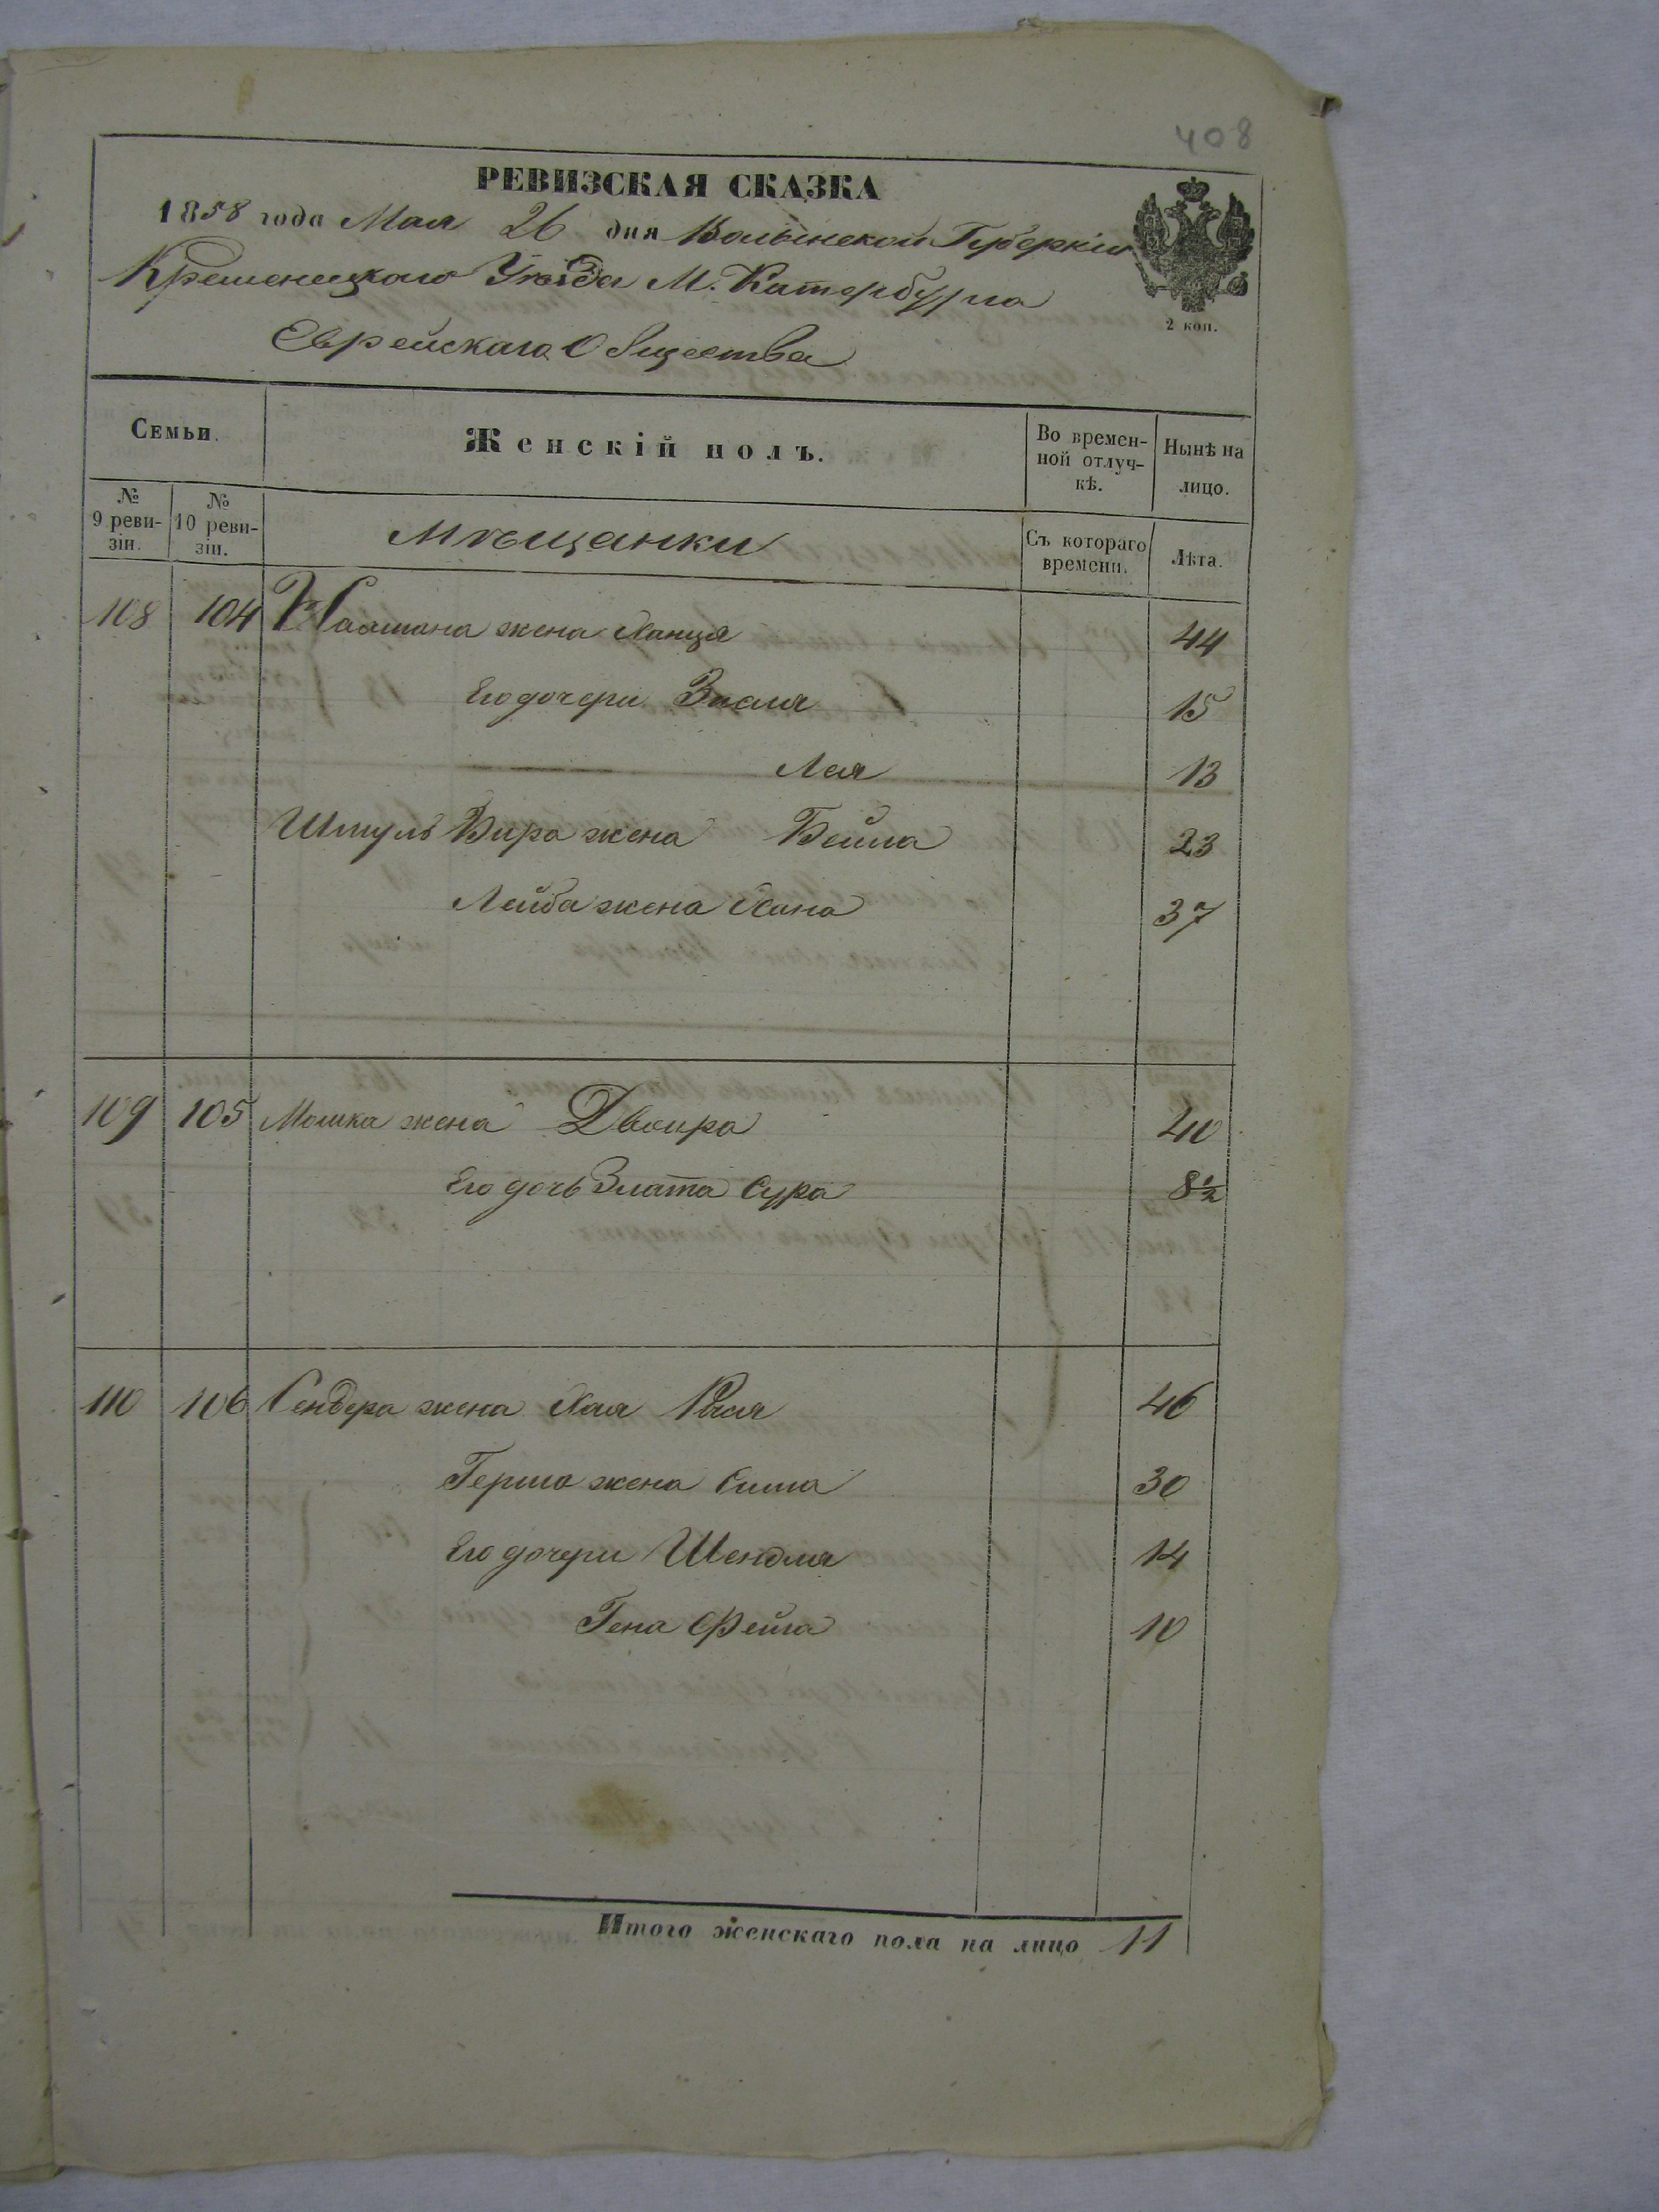 408
РЕВИЗСКАЯ СКАЗКА
1858 года Мая 26 дня Волынской Губерніи
Кременецкаго Уѣзда М. Катербурга
2 коп.
Еврейскаго Общества
Семьи.
Женскій полъ.
Во времен-
ной отлуч-
кѣ.
Нынѣ на
лицо.
№
9 реви-
зіи.
№
10 реви-
зіи.
Мѣщанки
Съ котораго
времени.
Лѣта.
108 104 жена Ханця 44
Его дочери 15
Лея 13
Шмуль Бира жена Бейла 23
Лейба жена Хана 37
109 105 Мошка жена Двойра 40
Его дочь Злата Сура 8½
110 106 Сендера жена Хая Рыся 46
Герша жена Сима 30
Его дочери Шендля 14
Гена Фейга 10
Итого женскаго пола на лицо 11